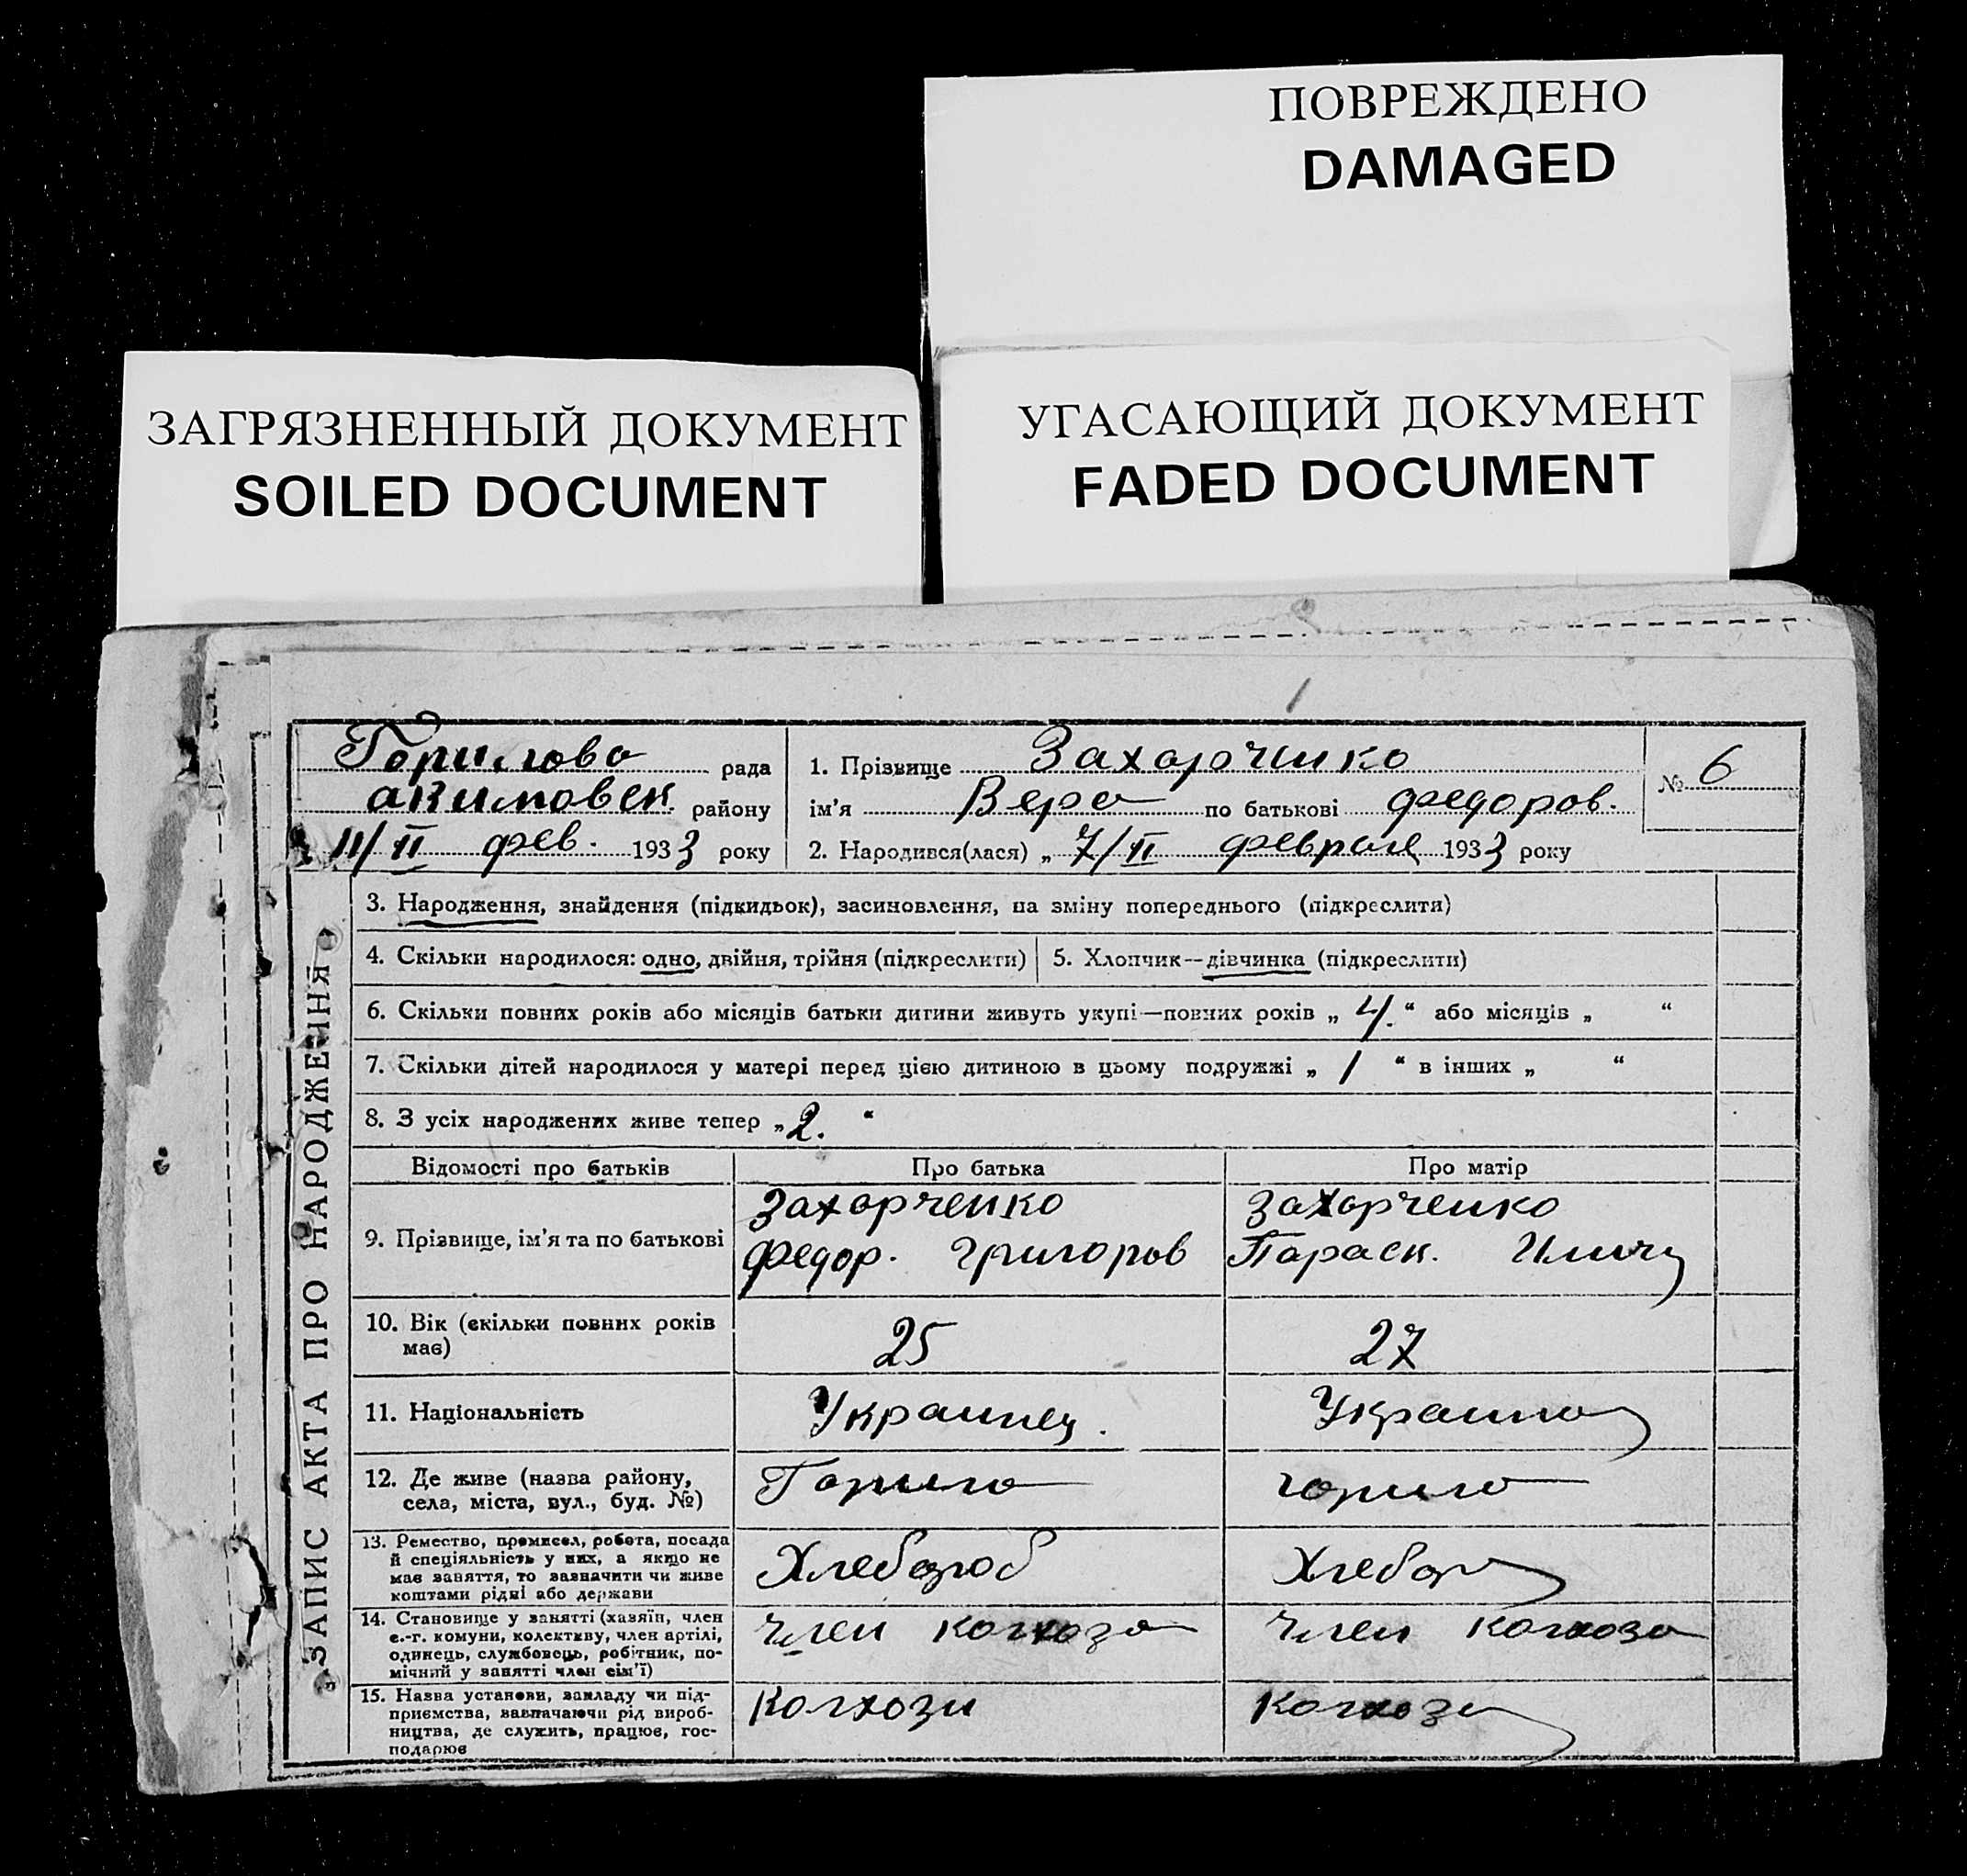 ПОВРЕЖДЕНО
DAMAGED
ЗАГРЯЗНЕННЫЙ ДОКУМЕНТ
SOILED DOCUMENT
УГАСАЮЩИЙ ДОКУМЕНТ
FADED DOCUMENT
рада
району
11/II фев. 1933 року
1. Прізвище Захарченко
ім'я Вера по батькові Федоров.
2. Народився(лася) „ 7/II февраля 1933 року
№ 6
ЗАПИС АКТА ПРО НАРОДЖЕННЯ
3. Народження, знайдення (підкидьок), засиновлення, на зміну попереднього (підкреслити)
4. Скільки народилося: одно, двійня, трійня (підкреслити)
5. Хлопчик—дівчинка (підкреслити)
6. Скільки повних років або місяців батьки дитини живуть укупі—повних років „ 4. “ або місяців „ “
7. Скільки дітей народилося у матері перед цією дитиною в цьому подружжі „ 1 “ в інших „ “
8. З усіх народжених живе тепер „ 2. “
Відомості про батьків
Про батька
Про матір
9. Прізвище, ім'я та по батькові
Захарченко
Федор. Григоров
Захарченко
Параск.
10. Вік (скільки повних років
має)
25
27
11. Національність
Украинец.
12. Де живе (назва району,
села, міста, вул., буд. №)
13. Ремество, промисел, робота, посада
й спеціяльність у них, а якщо не
має заняття, то зазначити чи живе
коштами рідні або держави
Хлебороб
14. Становище у занятті (хазяїн, член
с.-г. комуни, колективу, член артілі,
одинець, службовець, робітник, по-
мічний у занятті член сім'ї)
Член колхоза
Член колхоза
15. Назва установи, закладу чи під-
приємства, зазначаючи рід вироб-
ництва, де служить, працює, гос-
подарює